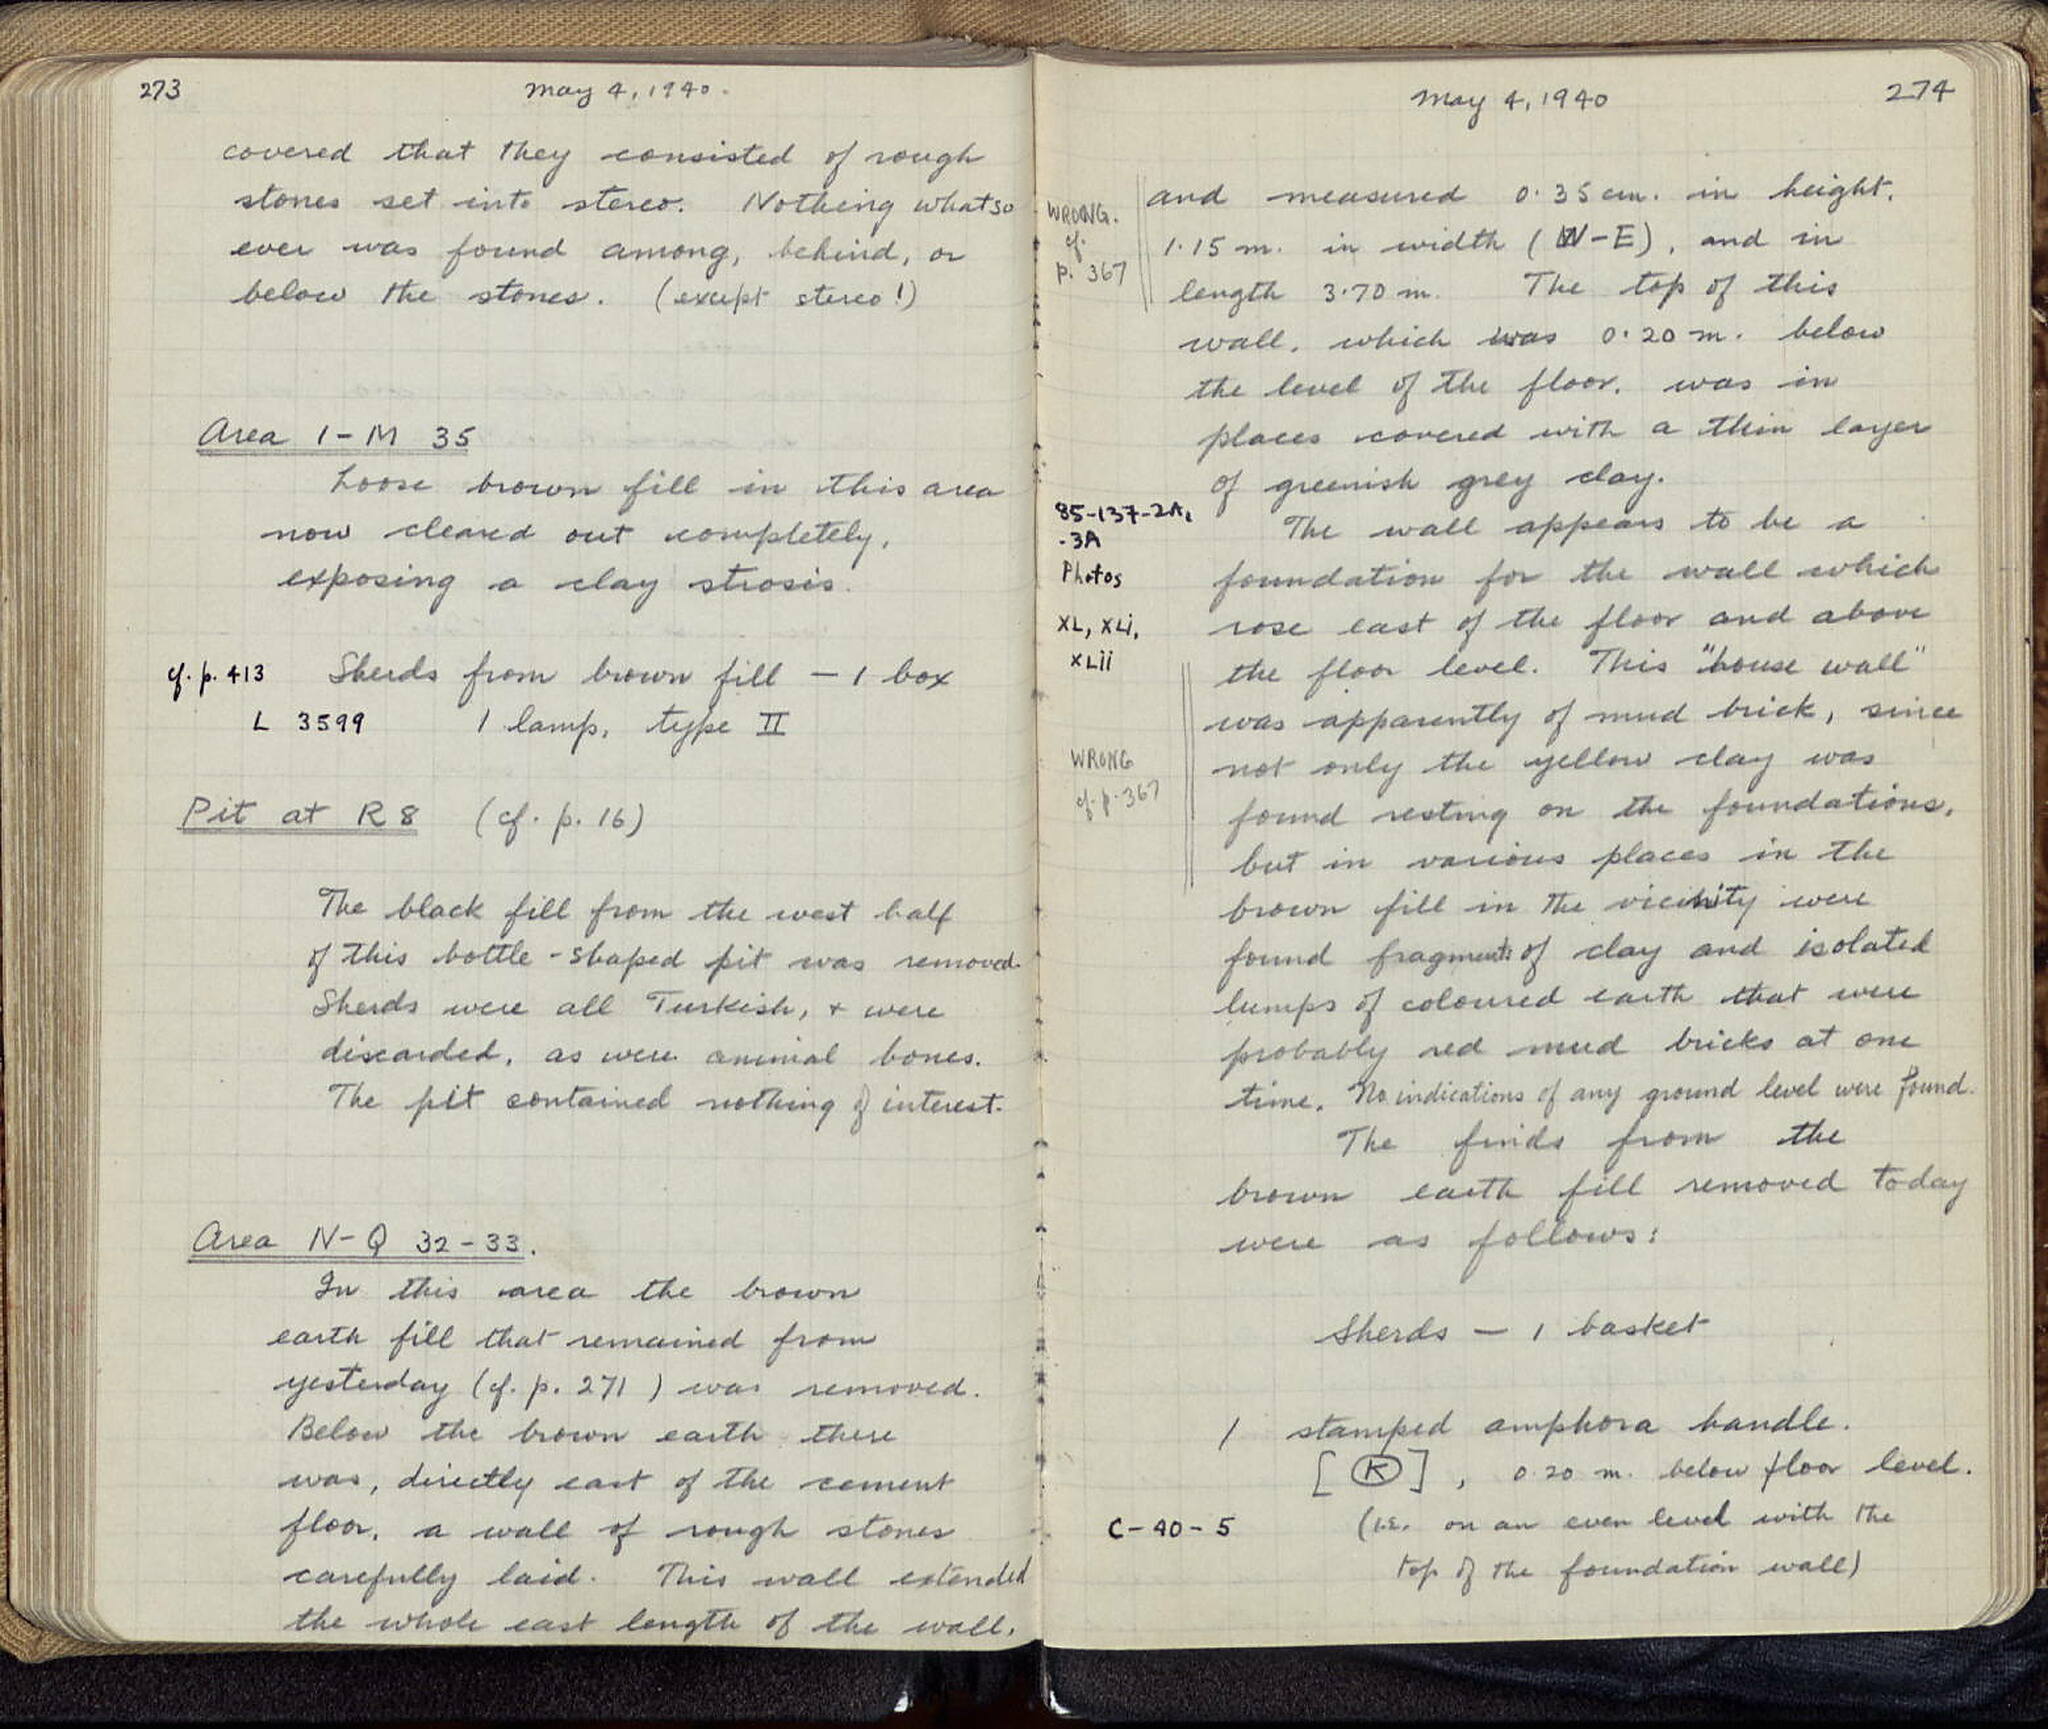 273
May 4, 1940.
covered that they consisted of rough
stones set into stereo. Nothing whatso
ever was found among, behind, or
below the stones. (except stereo!)
Area I-M 35
Loose brown fill in this area
now cleared out completely,
exposing a clay strosis.
cf. p. 413 Sherds from brown fill — 1 box
L 3599 1 lamp, type II
Pit at R 8 (cf. p. 16)
The black fill from the west half
of this bottle-shaped pit was removed.
Sherds were all Turkish, + were
discarded, as were animal bones.
The pit contained nothing of interest.
Area N-Q 32-33.
In this area the brown
earth fill that remained from
yesterday (cf. p. 271) was removed.
Below the brown earth there
was, directly east of the cement
floor, a wall of rough stones
carefully laid. This wall extended
the whole east length of the wall,
May 4, 1940
274
and measured 0.35 cm. in height,
WRONG.
cf.
p. 367
1.15 m. in width (W-E), and in
length 3.70 m. The top of this
wall, which was 0.20 m. below
the level of the floor, was in
places covered with a thin layer
of greenish grey clay.
85-137-2A,
-3A
Photos
XL, XLi,
XLii
The wall appears to be a
foundation for the wall which
rose east of the floor and above
the floor level. This "house wall"
was apparently of mud brick, since
WRONG
cf. p. 367
not only the yellow clay was
found resting on the foundations,
but in various places in the
brown fill in the vicinity were
found fragments of clay and isolated
lumps of coloured earth that were
probably red mud bricks at one
time. No indications of any ground level were found.
The finds from the
brown earth fill removed today
were as follows:
Sherds — 1 basket
1 stamped amphora handle.
[K], 0.20 m. below floor level.
C-40-5 (i.e. on an even level with the
top of the foundation wall)